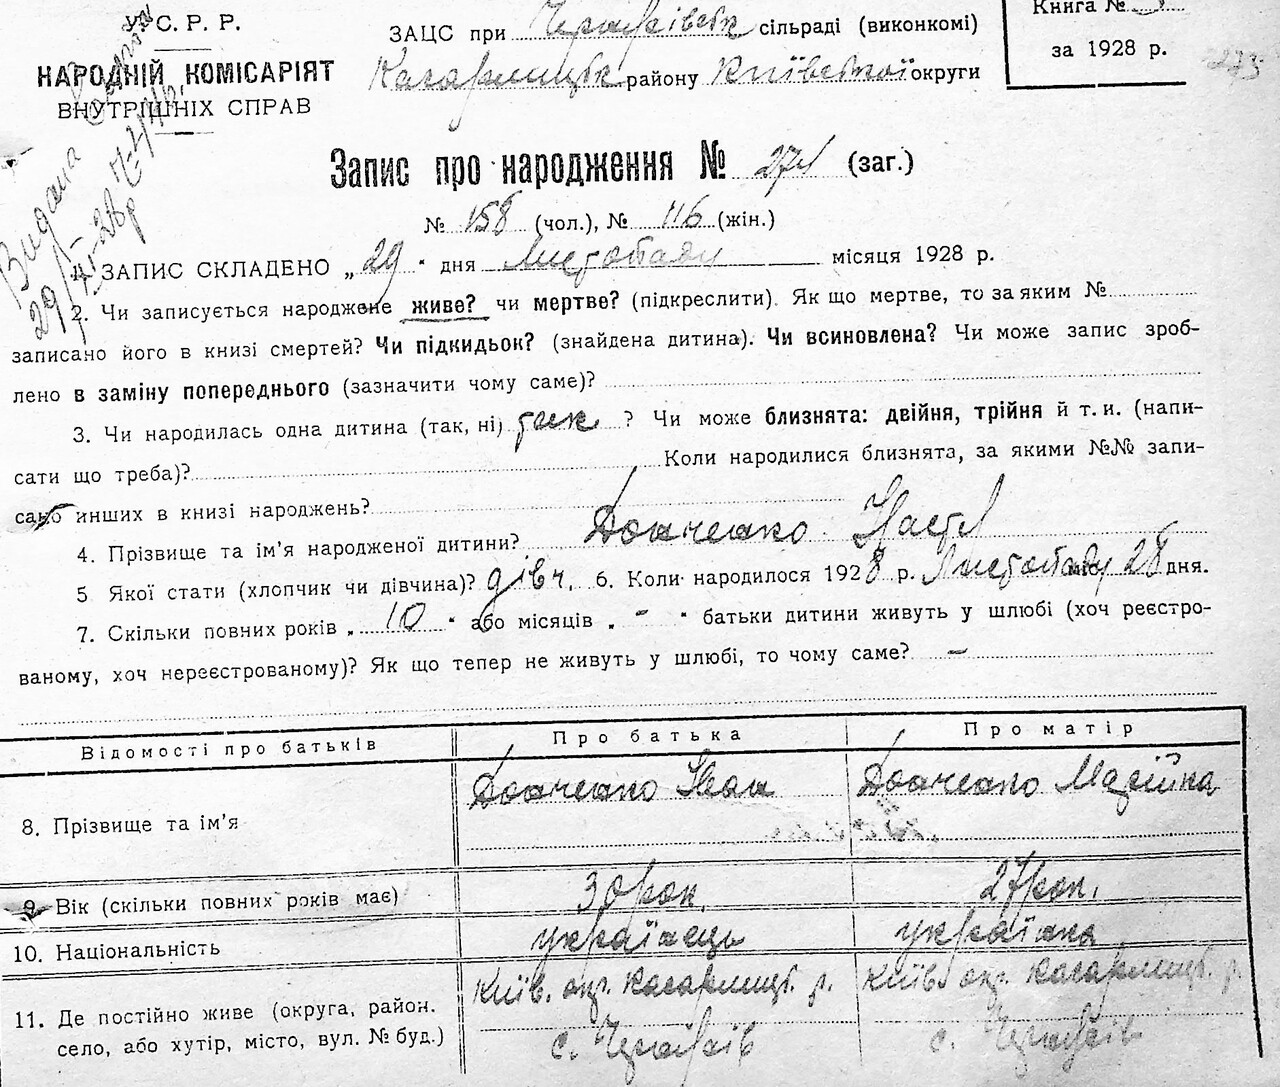 У. С. Р. Р.
НАРОДНІЙ КОМІСАРІЯТ
ВНУТРІШНІХ СПРАВ
ЗАЦС при сільраді (виконкомі)
Кагарлицьк. району Київської округи
Книга №
за 1928 р.
273
Видана
Запис про народження № 274 (заг.)
№ 158 (чол.), № 116 (жін.)
1. ЗАПИС СКЛАДЕНО „29“ дня Листопаду місяця 1928 р.
2. Чи записується народжене живе? чи мертве? (підкреслити). Як що мертве, то за яким №
записано його в книзі смертей? Чи підкидьок? (знайдена дитина). Чи всиновлена? Чи може запис зроб-
лено в заміну попереднього (зазначити чому саме)?
3. Чи народилась одна дитина (так, ні) так ? Чи може близнята: двійня, трійня й т. и. (напи-
сати що треба)? Коли народилися близнята, за якими №№ запи-
сано инших в книзі народжень?
4. Прізвище та ім'я народженої дитини? Донченко Настя
5 Якої стати (хлопчик чи дівчина)? дівч. 6. Коли народилося 1928 р. Листопаду 28 дня.
7. Скільки повних років „10“ або місяців „-“ батьки дитини живуть у шлюбі (хоч реєстро-
ваному, хоч нереєстрованому)? Як що тепер не живуть у шлюбі, то чому саме? —
Відомості про батьків Про батька Про матір
8. Прізвище та ім'я Донченко Іван Донченко Марійка
9. Вік (скільки повних років має) 30 рок. 27 рок.
10. Національність українець українка
11. Де постійно живе (округа, район, Київ. окр. Кагарлицьк. р. Київ. окр. Кагарлицьк. р.
село, або хутір, місто, вул. № буд.) с. с.